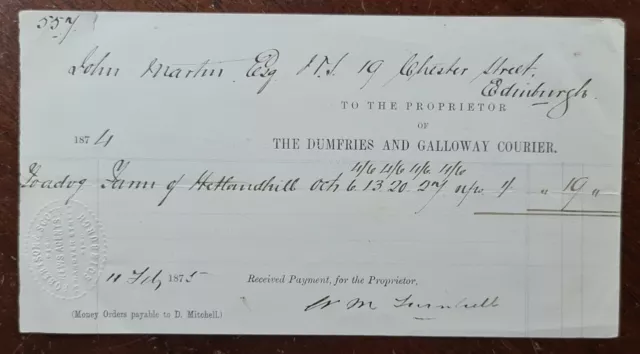 557
John Martin Esq W.S. 19 Chester Street,
Edinburgh.
TO THE PROPRIETOR
OF
1874
THE DUMFRIES AND GALLOWAY COURIER.
4/6 4/6 4/6 4/6
To advg Farm of Hetlandhill Octr 6. 13. 20. 27 1/- " 19 "
11 Feby 1875
Received Payment, for the Proprietor,
W M Turnbull
(Money Orders payable to D. Mitchell.)